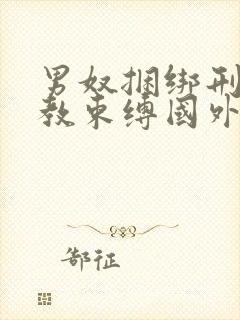 男奴捆绑刑
教束缚国外
郜征